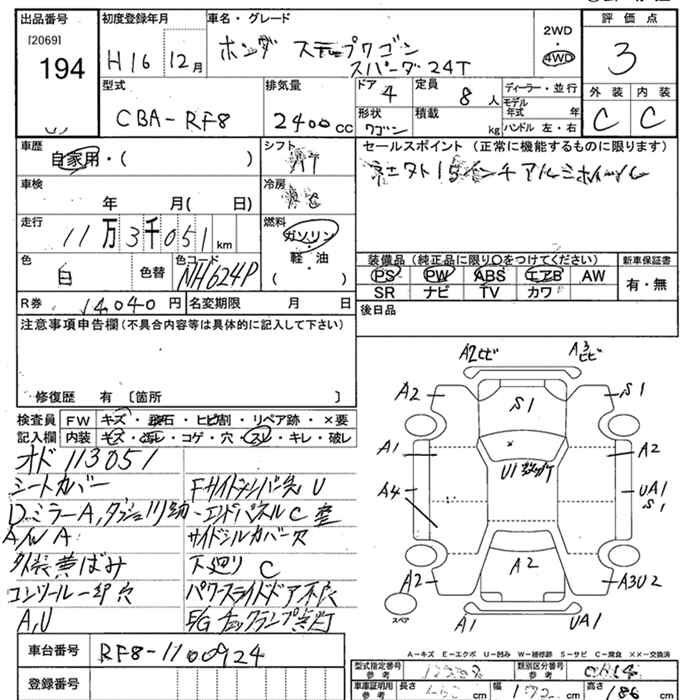 出品番号 初度登録年月 車名・グレード 2WD 評価点
[2069] H16 12月 ホンダ ステップワゴン 4WD 3
194 スパーダ24T
型式 排気量 ドア 4 定員 8人 ディーラー・並行 外装 内装
CBA-RF8 2400cc 形状 ワゴン 積載 kg モデル年式 年 C C
ハンドル 左・右
車歴 シフト セールスポイント (正常に機能するものに限ります)
自家用・( ) AT
車検 冷房 15インチアルミホイール
年 月( 日)
走行 燃料
11万3千051km ガソリン
軽・油
色 色替 色コード ( ) 装備品 (純正品に限り○をつけてください) 新車保証書
白 NH624P PS PW ABS エアB AW 有・無
SR ナビ TV カワ
R券 14,040円 名変期限 月 日 後日品
注意事項申告欄(不具合内容等は具体的に記入して下さい)
修復歴 有 [箇所 ]
検査員 FW キズ・飛石・ヒビ割・リペア跡・×要
記入欄 内装 キズ・汚レ・コゲ・穴・スレ・キレ・破レ
オド113051
シートカバー F サイドメンバー先 U
DミラーA, エンドパネルC
A/W A サイドシルカバー欠
外装黄ばみ 下廻りC
コンソール 穴 パワースライドドア不良
A,U E/Gチェックランプ点灯
A2ヒビ A3ヒビ
A2 S1 S1
A1 A2
U1
A4 UA1
S1
A2 A2 A3U2
スペア A1 UA1
A-キズ E-エクボ U-凹み W-補修跡 S-サビ C-腐食 ××-交換済
車台番号 RF8-1100924
登録番号
型式指定番号 参考 類別区分番号 参考
車庫証明用 参考 長さ cm 幅 cm 高さ 186 cm